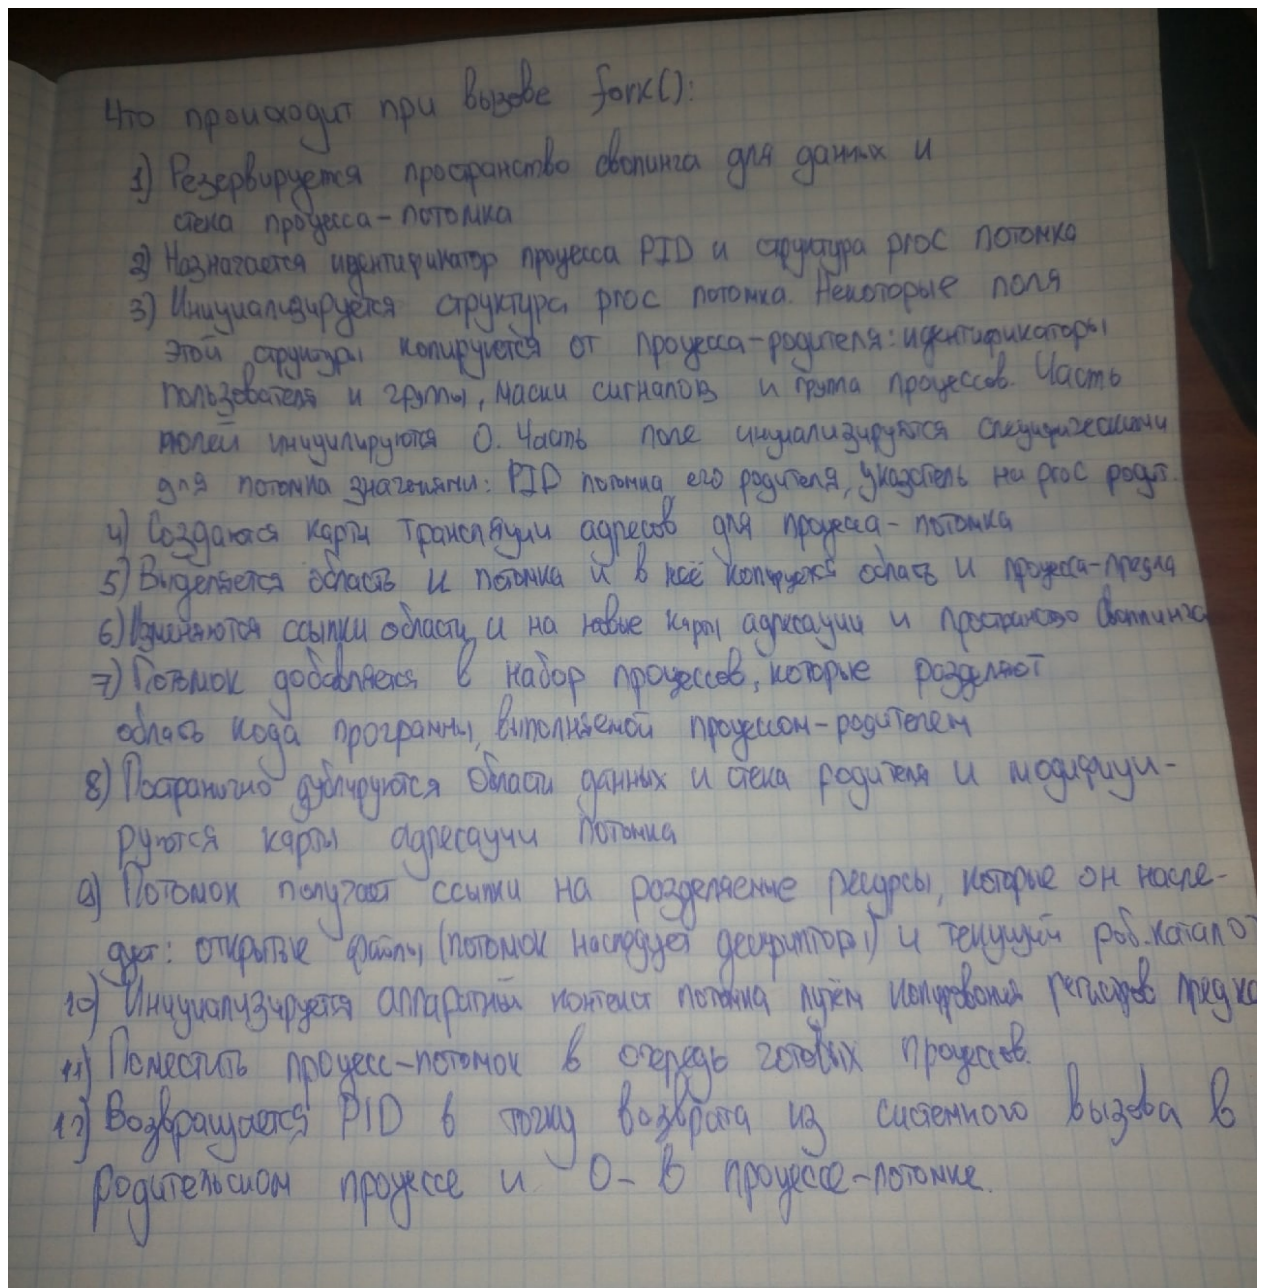 Что происходит при вызове fork():
1) Резервируется пространство свопинга для данных и
стека процесса-потомка
2) Назначается идентификатор процесса PID и структура proc потомка
3) Инициализируется структура proc потомка. Некоторые поля
этой структуры копируются от процесса-родителя: идентификаторы
пользователя и группы, маски сигналов и группа процессов. Часть
полей инициализируются 0. Часть поле инициализируются специфическими
для потомка значениями: PID потомка его родителя, указатель на proc родит.
4) Создаются карты трансляции адресов для процесса-потомка
5) Выделяется область u потомка и в неё копируется область u процесса-предка
6) Изменяются ссылки области u на новые карты адресации и пространство своппинга
7) Потомок добавляется в набор процессов, которые разделяют
область кода программы, выполняемой процессом-родителем
8) Постранично дублируются области данных и стека родителя и модифици-
руются карты адресации потомка
9) Потомок получает ссылки на разделяемые ресурсы, которые он насле-
дует: открытые файлы (потомок наследует дескрипторы) и текущий раб.каталог
10) Инициализируется аппаратный контекст потомка путём копирования регистров предка
11) Поместить процесс-потомок в очередь готовых процессов.
12) Возвращается PID в точку возврата из системного вызова в
родительском процессе и 0- в процессе-потомке.